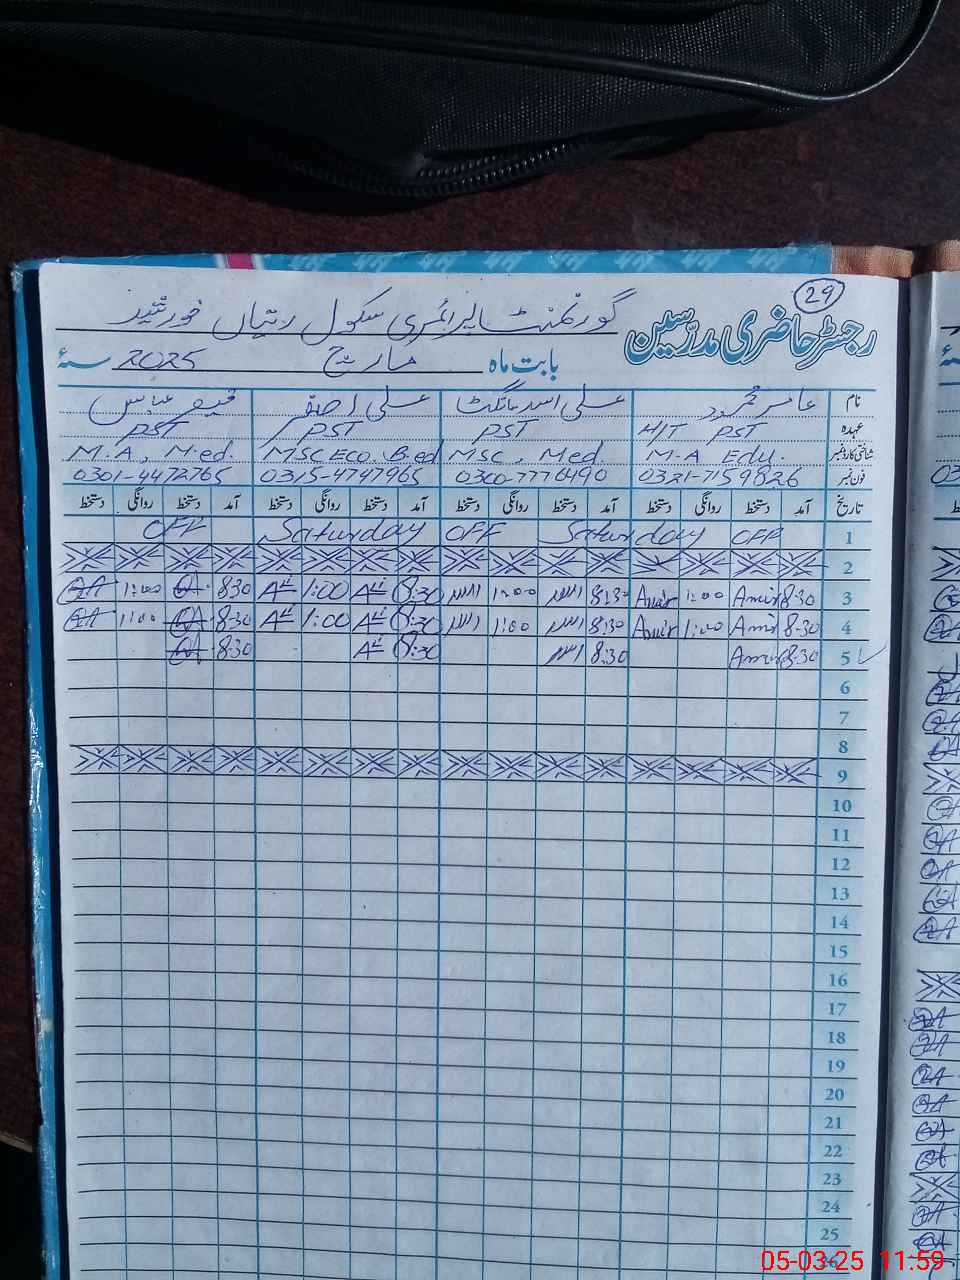 29
رجسٹر حاضری مدرسین گورنمنٹ پرائمری سکول رتیاں
بابت ماہ مارچ 2025 سنۂ
نام عامر محمود علی اسد علی اصغر عباس
عہدہ H/T PST PST PST PST
شناختی کارڈ نمبر M-A Edu. MSC, Med. MSC Eco B.ed M.A, M.ed.
فون نمبر 0321-7159826 0300-7776490 0315-4747965 0301-4472765
تاریخ آمد دستخط روانگی دستخط آمد دستخط روانگی دستخط آمد دستخط روانگی دستخط آمد دستخط روانگی دستخط
1 OFF Saturday OFF Saturday OFF
2
3 8:30 Amir 1:00 Amir 8:30 1:00 8:30 1:00 8:30 QA 1:00 QA
4 8-30 Amir 1:00 Amir 8:30 1:00 8:30 1:00 8-30 QA 1:00 QA
5 8-30 Amir 8:30 8:30 8-30 QA
6
7
8
9
10
11
12
13
14
15
16
17
18
19
20
21
22
23
24
25
26
05-03-25 11:59